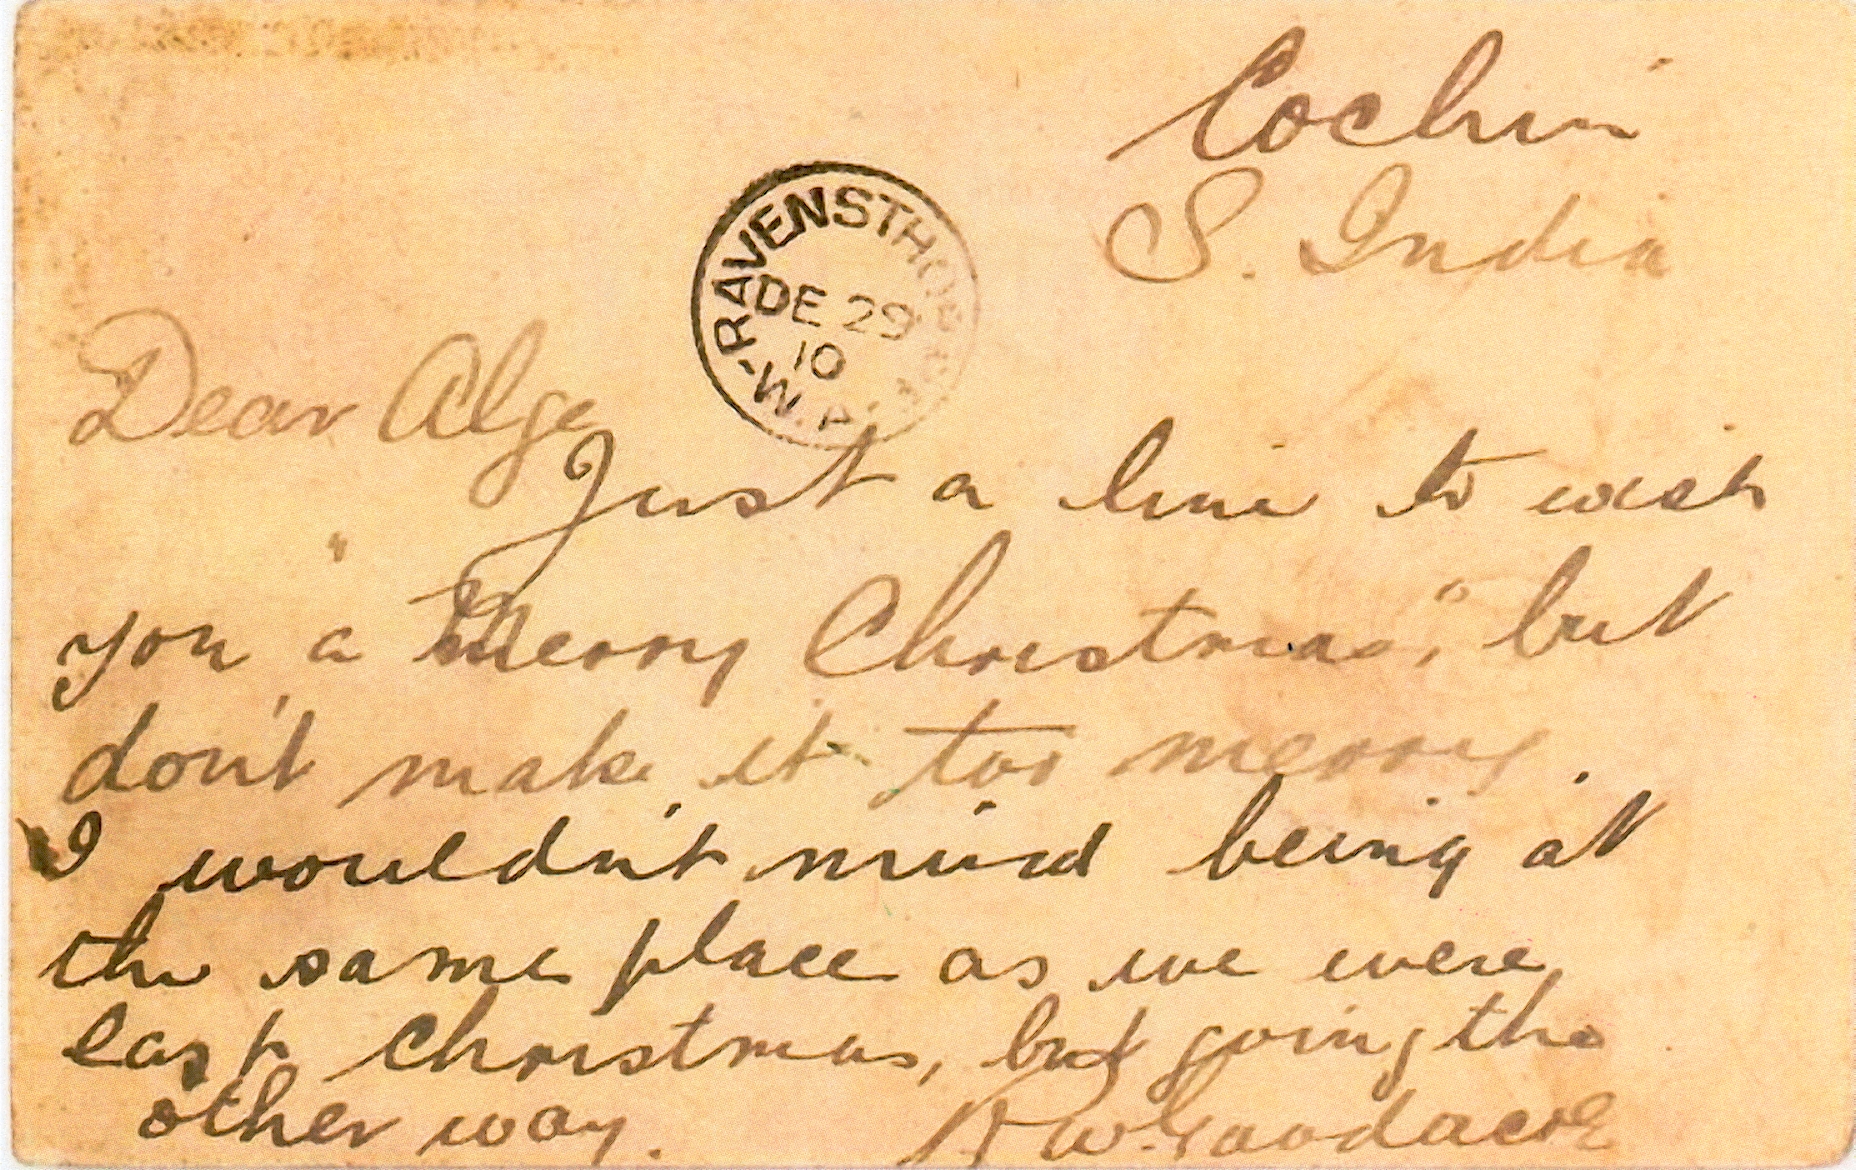 Cochin
S. India
RAVENSTHORPE
DE 29
10
W.A.
Dear Alge
Just a line to wish
you a "Merry Christmas", but
don't make it too merry.
I wouldn't mind being at
the same place as we were
last Christmas, but going the
other way. R W. Goodacre